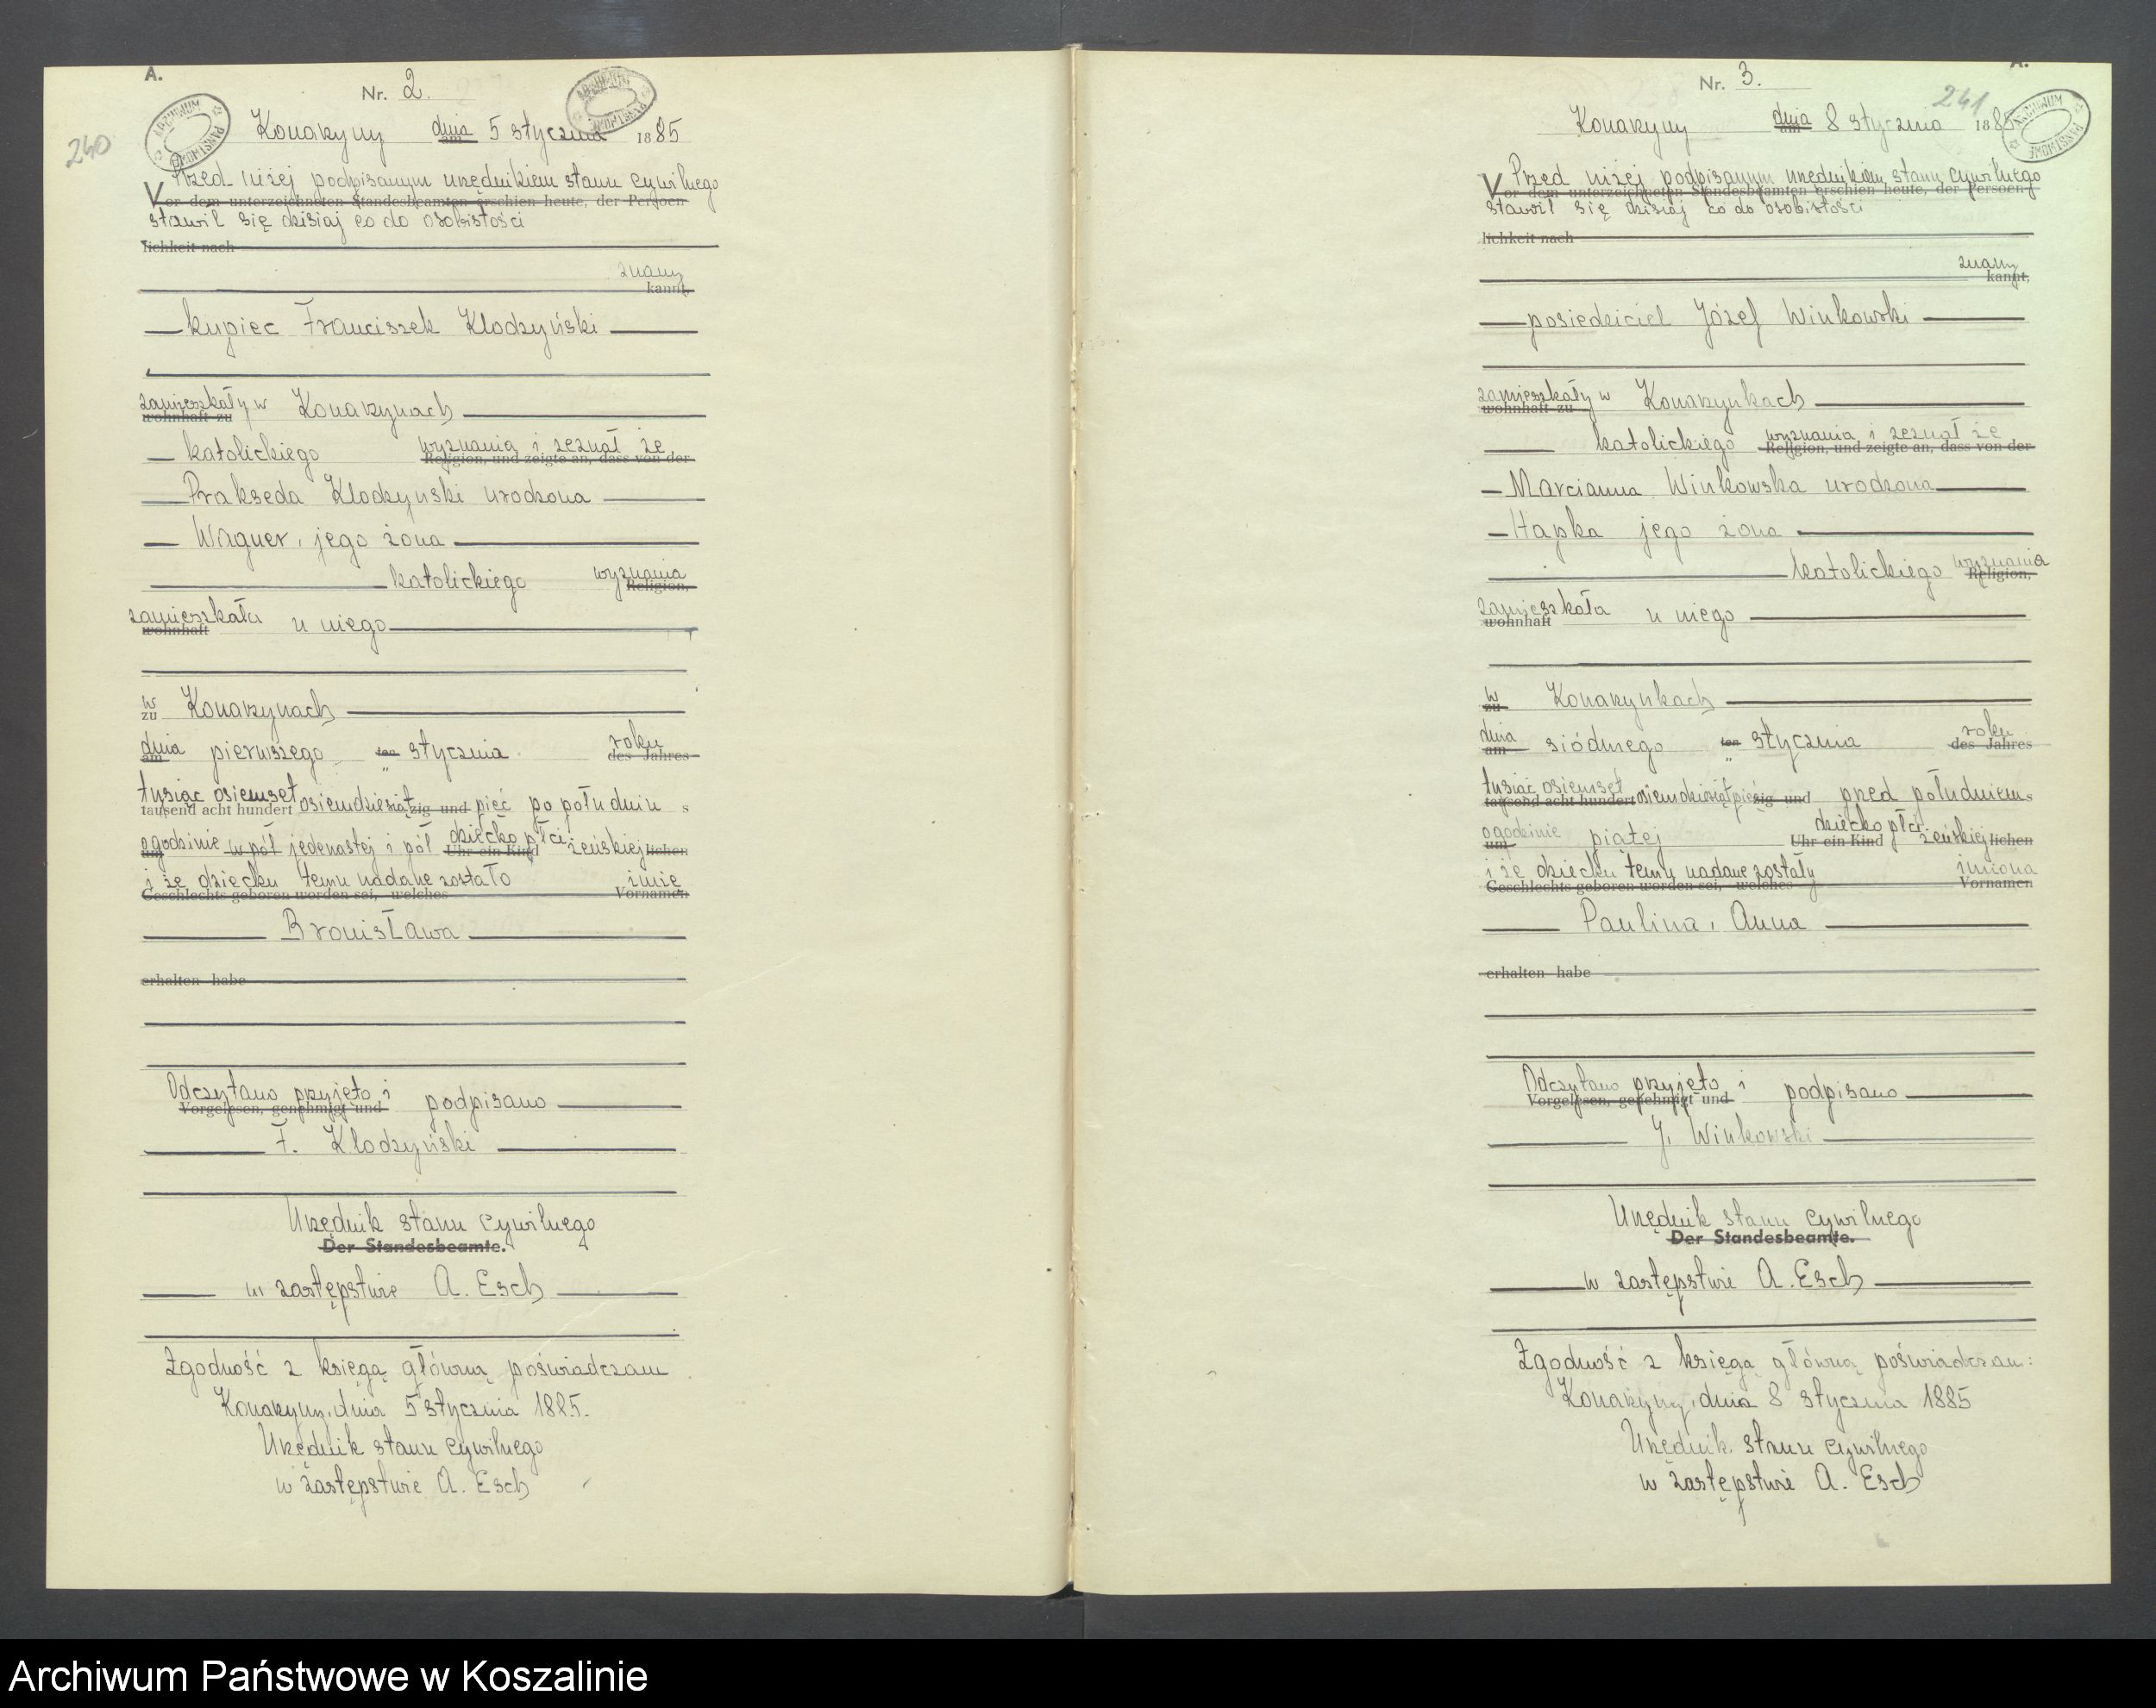 A.
Nr. 2.
240
ARCHIWUM PAŃSTWOWE
ARCHIWUM PAŃSTWOWE
Konarzyny dnia am 5 stycznia 1885
Przed niżej podpisanym urzędnikiem stanu cywilnego
Vor dem unterzeichneten Standesbeamten erschien heute, der Persoen-
stawił się dzisiaj co do osobistości
lichkeit nach
znany
kannt,
kupiec Franciszek Klodzyński
zamieszkały w Konarzynach
wohnhaft zu
katolickiego wyznania i zeznał że
Religion, und zeigte an, dass von der
Prakseda Klodzynski urodzona
Wagner, jego żona
katolickiego wyznania
Religion,
zamieszkała u niego
wohnhaft
w
zu Konarzynach
dnia pierwszego ten stycznia roku
am des Jahres
tysiąc osiemset osiemdziesiąt pięć po południu
tausend acht hundert zig und s
o godzinie w pół jedenastej i pół dziecko płci żeńskiej
um Uhr ein Kind lichen
i że dziecku temu nadane zostało imię
Geschlechts geboren worden sei, welches Vornamen
Bronisława
erhalten habe
Odczytano przyjęto i podpisano
Vorgelesen, genehmigt und
F. Klodzyński
Urzędnik stanu cywilnego
Der Standesbeamte.
w zastępstwie A. Esch
Zgodność z księgą główną poświadczam
Konarzyny, dnia 5 stycznia 1885.
Urzędnik stanu cywilnego
w zastępstwie A. Esch
A.
Nr. 3.
241
ARCHIWUM PAŃSTWOWE
Konarzyny dnia am 8 stycznia 1885
Przed niżej podpisanym urzędnikiem stanu cywilnego
Vor dem unterzeichneten Standesbeamten erschien heute, der Persoen-
stawił się dzisiaj co do osobistości
lichkeit nach
znany
kannt,
posiedziciel Józef Winkowski
zamieszkały w Konarzynkach
wohnhaft zu
katolickiego wyznania i zeznał że
Religion, und zeigte an, dass von der
Marcianna Winkowska urodzona
Hapka jego żona
katolickiego wyznania
Religion,
zamieszkała u niego
wohnhaft
w
zu Konarzynkach
dnia siódmego ten stycznia roku
am des Jahres
tysiąc osiemset osiemdziesiąt pięć przed południem
tausend acht hundert zig und s
o godzinie piątej dziecko płci żeńskiej
um Uhr ein Kind lichen
i że dziecku temu nadane zostały imiona
Geschlechts geboren worden sei, welches Vornamen
Paulina, Anna
erhalten habe
Odczytano przyjęto i podpisano
Vorgelesen, genehmigt und
J. Winkowski
Urzędnik stanu cywilnego
Der Standesbeamte.
w zastępstwie A. Esch
Zgodność z księgą główną poświadczam:
Konarzyny, dnia 8 stycznia 1885
Urzędnik stanu cywilnego
w zastępstwie A. Esch
Archiwum Państwowe w Koszalinie